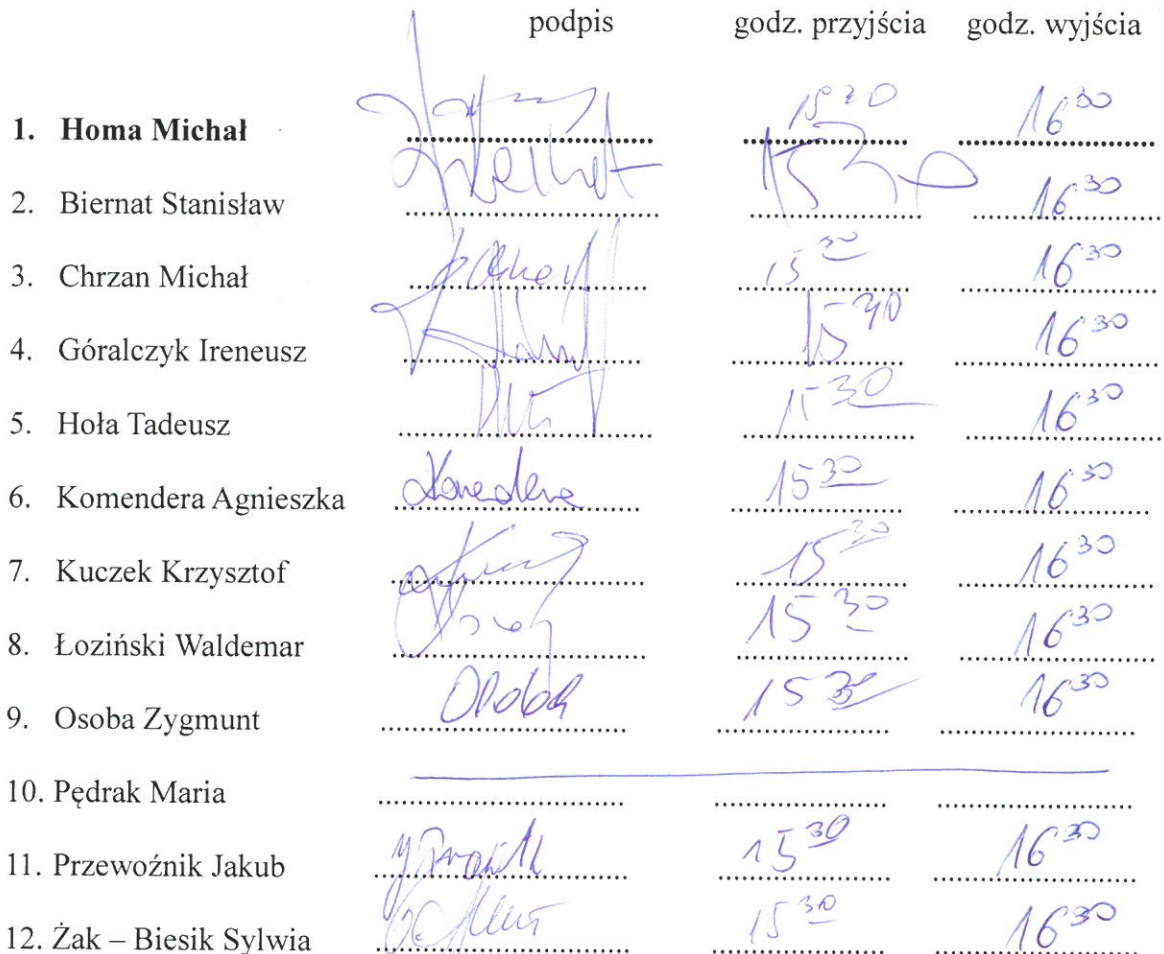 podpis godz. przyjścia godz. wyjścia
1. Homa Michał 15 30 16 30
2. Biernat Stanisław 15 30 16 30
3. Chrzan Michał 15 30 16 30
4. Góralczyk Ireneusz 15 30 16 30
5. Hoła Tadeusz 15 30 16 30
6. Komendera Agnieszka 15 30 16 30
7. Kuczek Krzysztof 15 30 16 30
8. Łoziński Waldemar 15 30 16 30
9. Osoba Zygmunt 15 30 16 30
10. Pędrak Maria
11. Przewoźnik Jakub 15 30 16 30
12. Żak – Biesik Sylwia 15 30 16 30